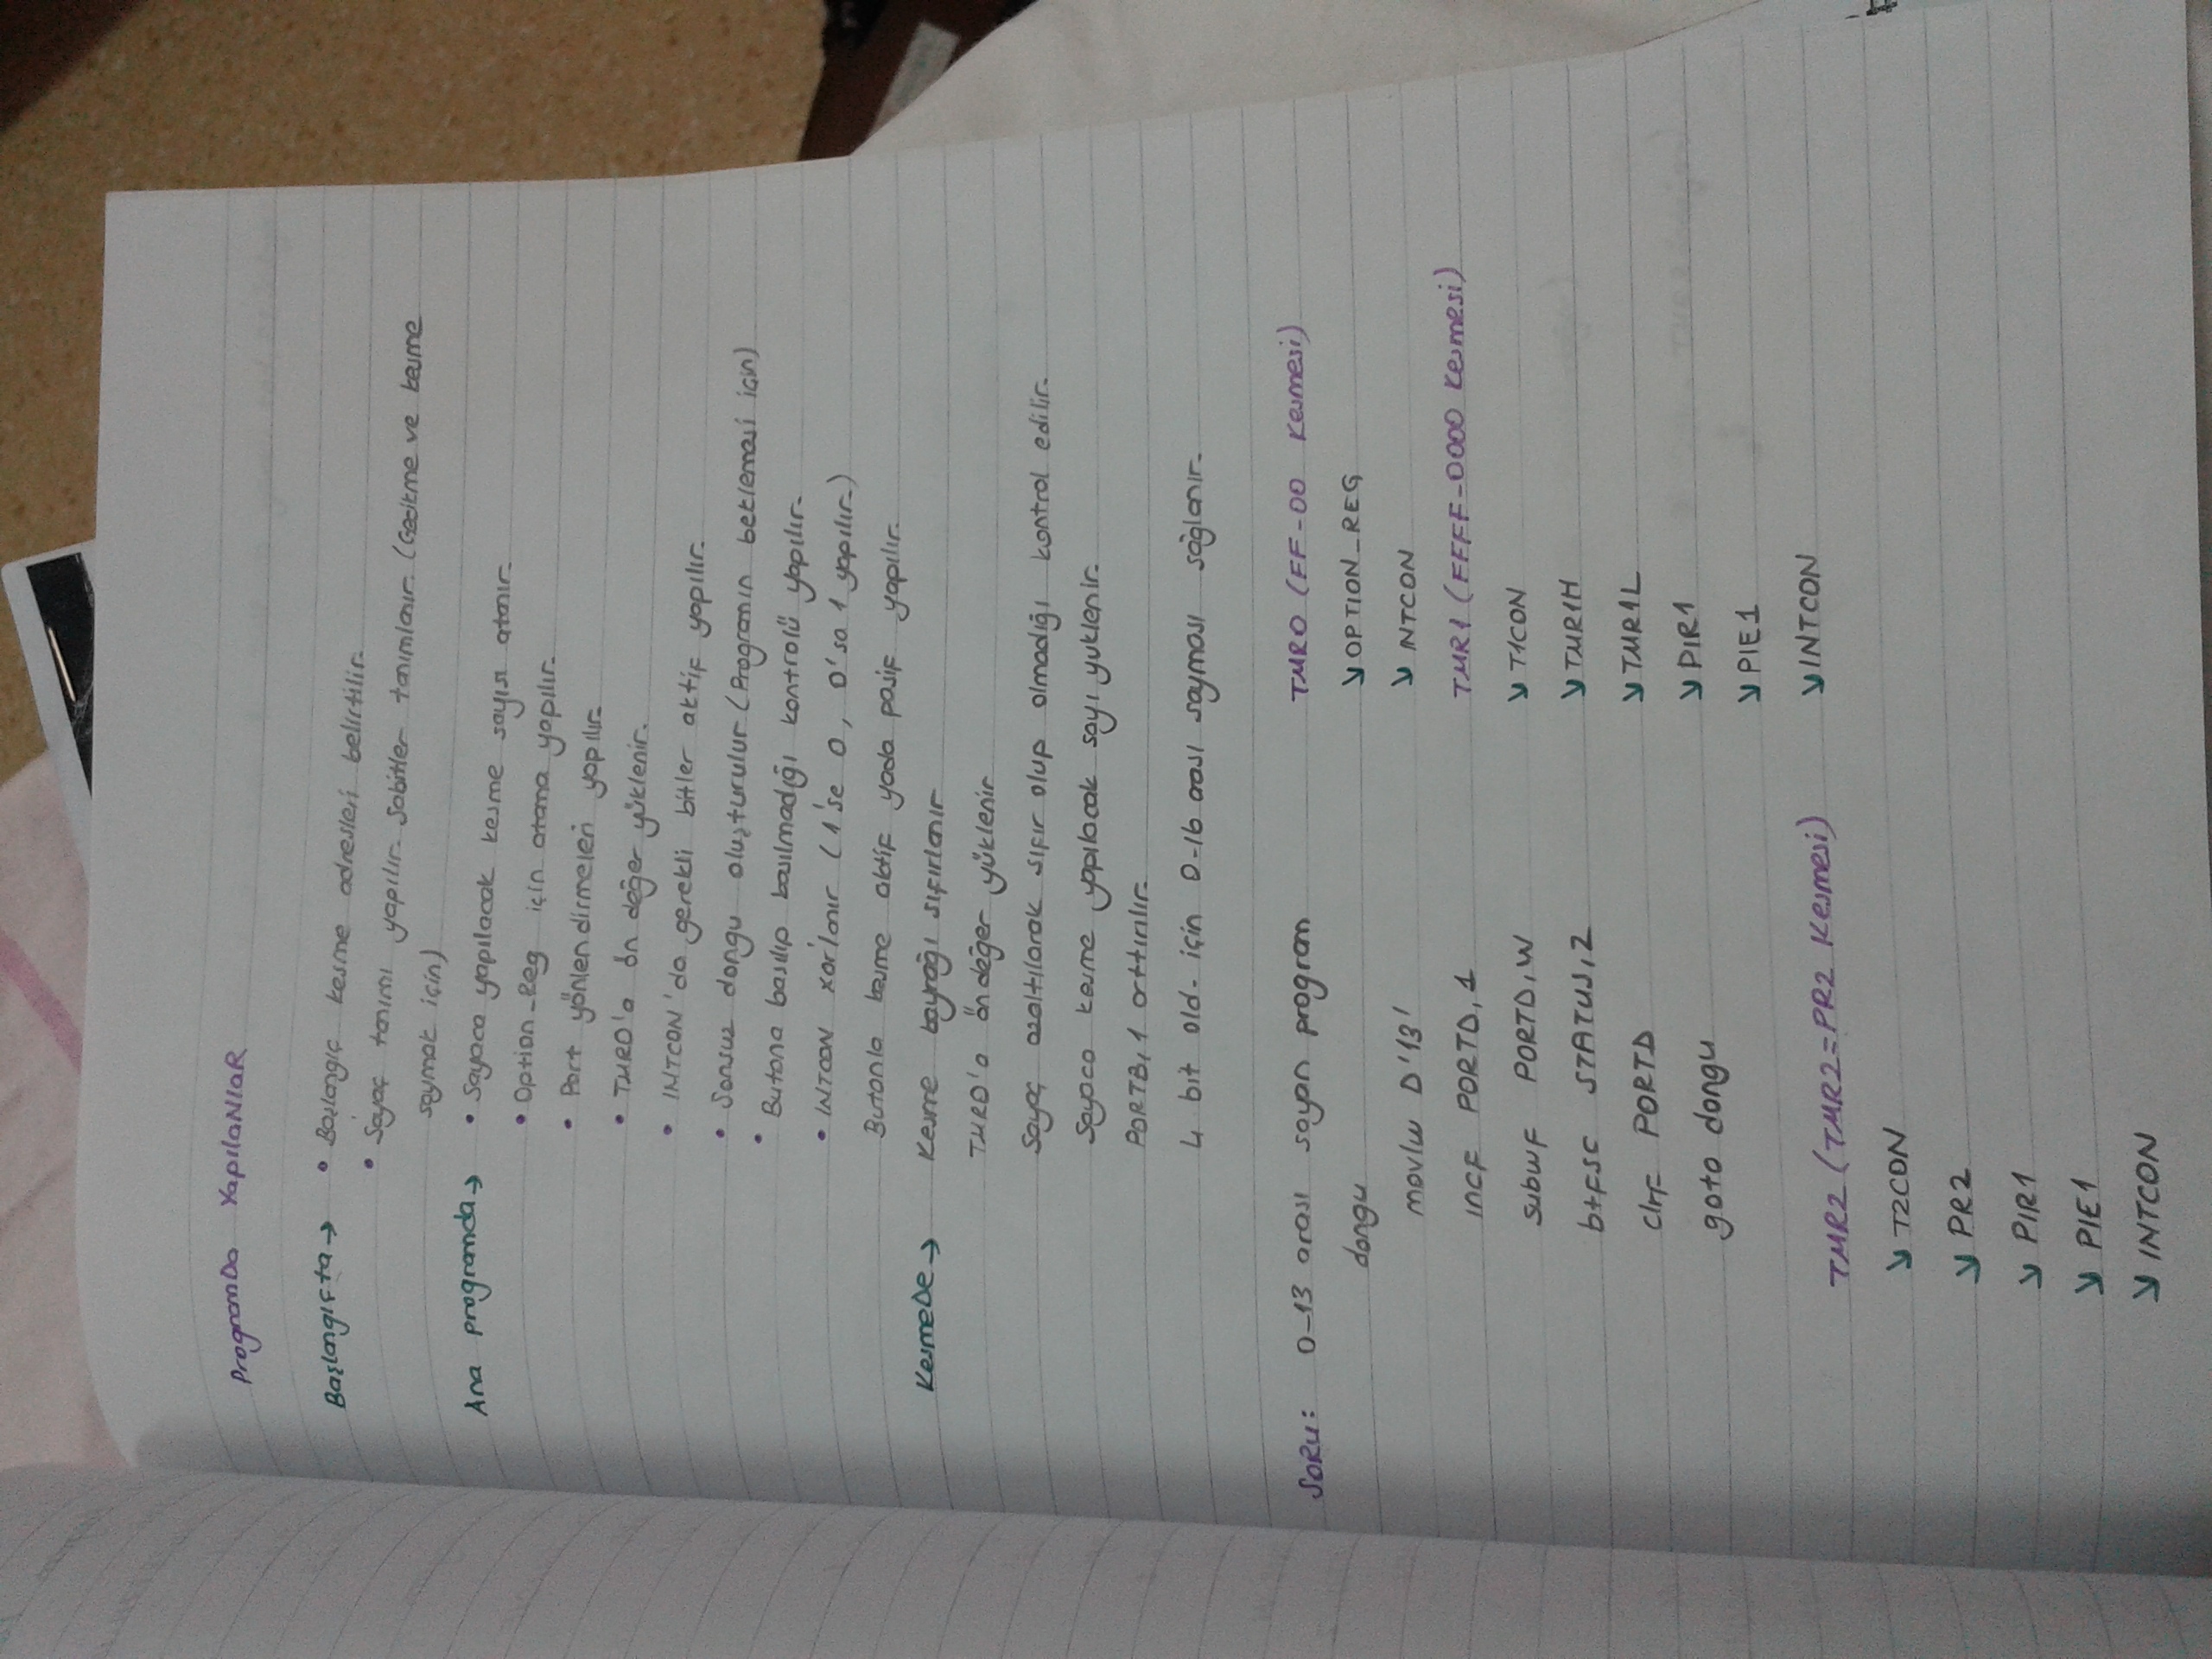 Programda Yapılanlar
Başlangıçta → • Başlangıç kesme adresleri belirtilir.
• Sayaç tanımı yapılır. Sabitler tanımlanır. (Gecikme ve kesme
saymak için)
Ana programda → • Sayaca yapılacak kesme sayısı atanır.
• Option_Reg için atama yapılır.
• Port yönlendirmeleri yapılır.
• TMR0'a ön değer yüklenir.
• INTCON'da gerekli bitler aktif yapılır.
• Sonsuz dongu oluşturulur (Programın beklemesi için)
• Butona basılıp basılmadığı kontrolü yapılır.
• INTCON xor'lanır (1'se 0, 0'sa 1 yapılır.)
Butonla kesme aktif yada pasif yapılır.
Kesmede → Kesme bayrağı sıfırlanır
TMR0'a ön değer yüklenir
Sayaç azaltılarak sıfır olup olmadığı kontrol edilir.
Sayaca kesme yapılacak sayı yuklenir.
PORTB,1 arttırılır.
4 bit old. için 0-16 arası sayması sağlanır.
Soru: 0-13 arası sayan program
dongu
movlw D'13'
incf PORTD,1
subwf PORTD,W
btfsc STATUS,Z
clrf PORTD
goto dongu
TMR0 (FF-00 Kesmesi)
↘ OPTION_REG
↘ INTCON
TMR1 (FFFF-0000 Kesmesi)
↘ T1CON
↘ TMR1H
↘ TMR1L
↘ PIR1
↘ PIE1
↘ INTCON
TMR2 (TMR2=PR2 Kesmesi)
↘ T2CON
↘ PR2
↘ PIR1
↘ PIE1
↘ INTCON